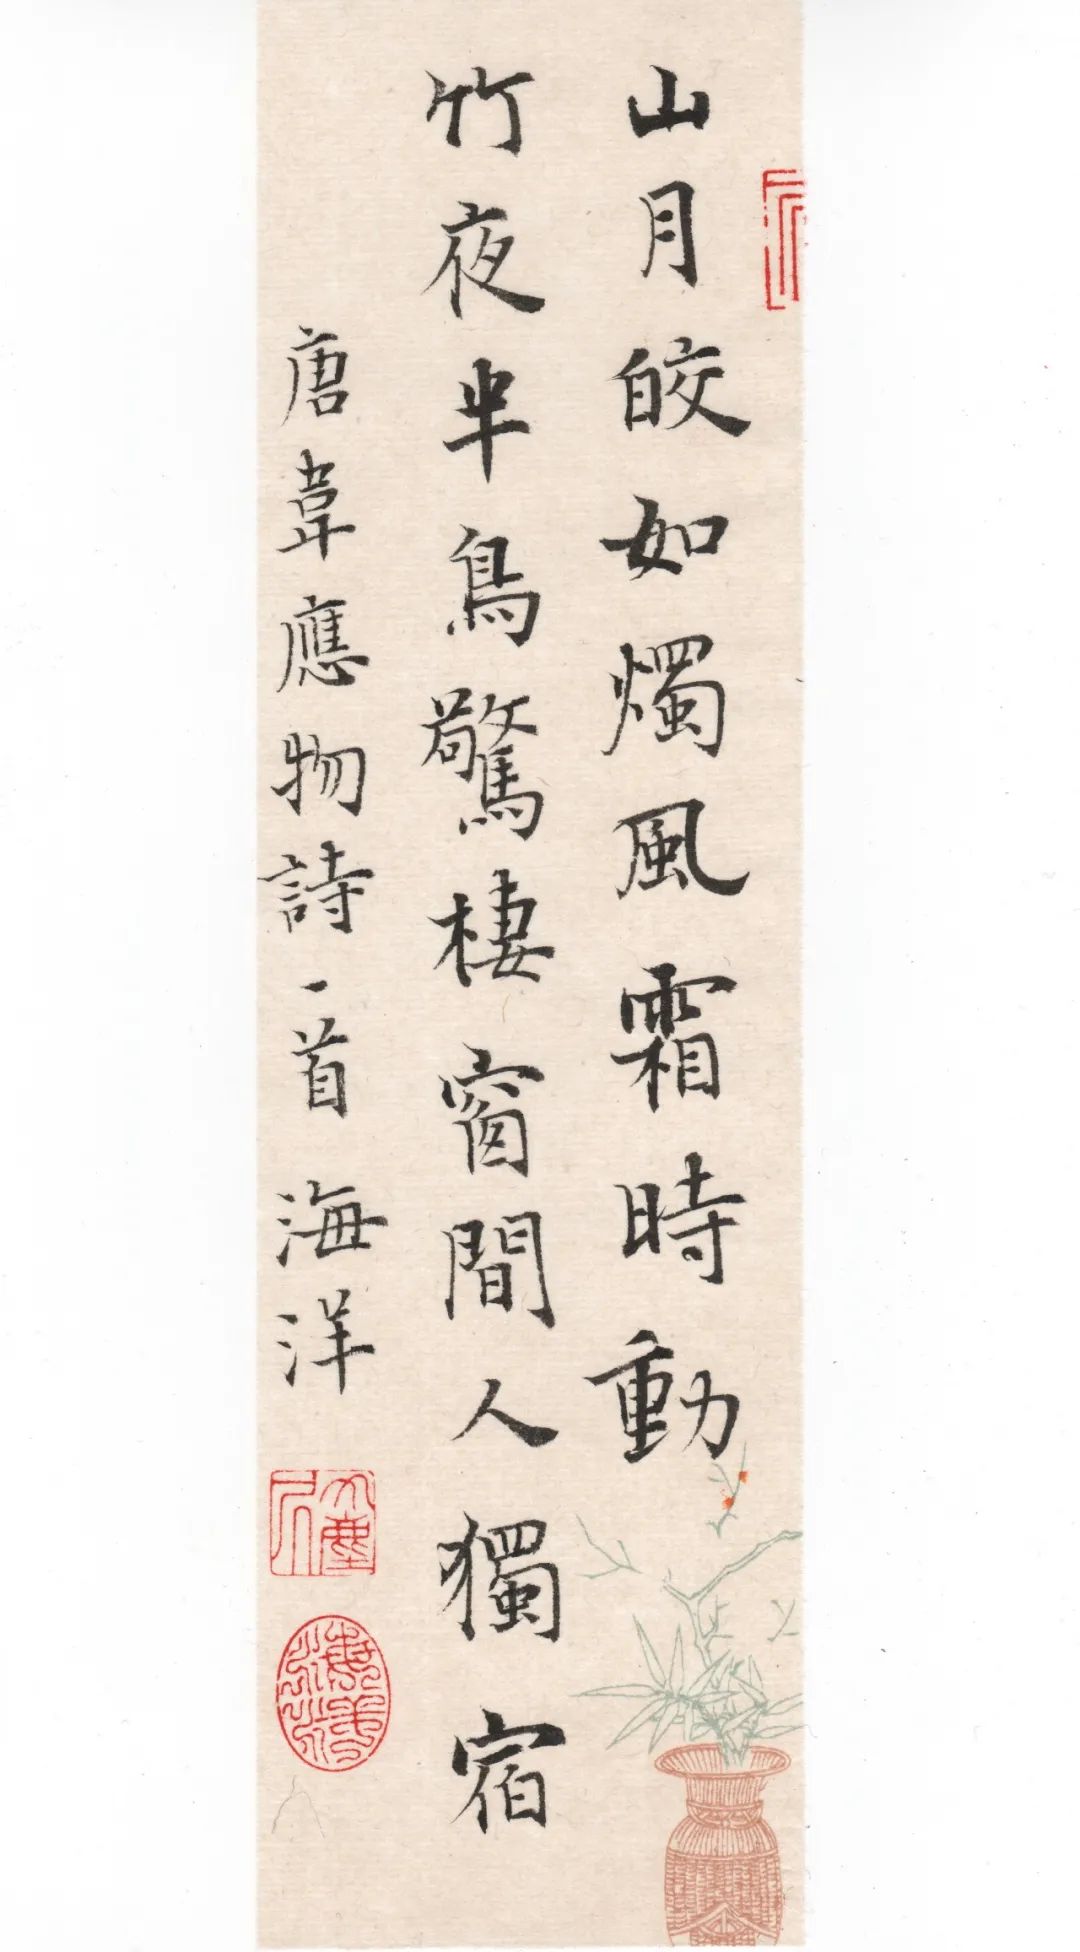 山月皎如燭風霜時動
竹夜半鳥驚棲窗間人獨宿
唐韋應物詩一首 海洋